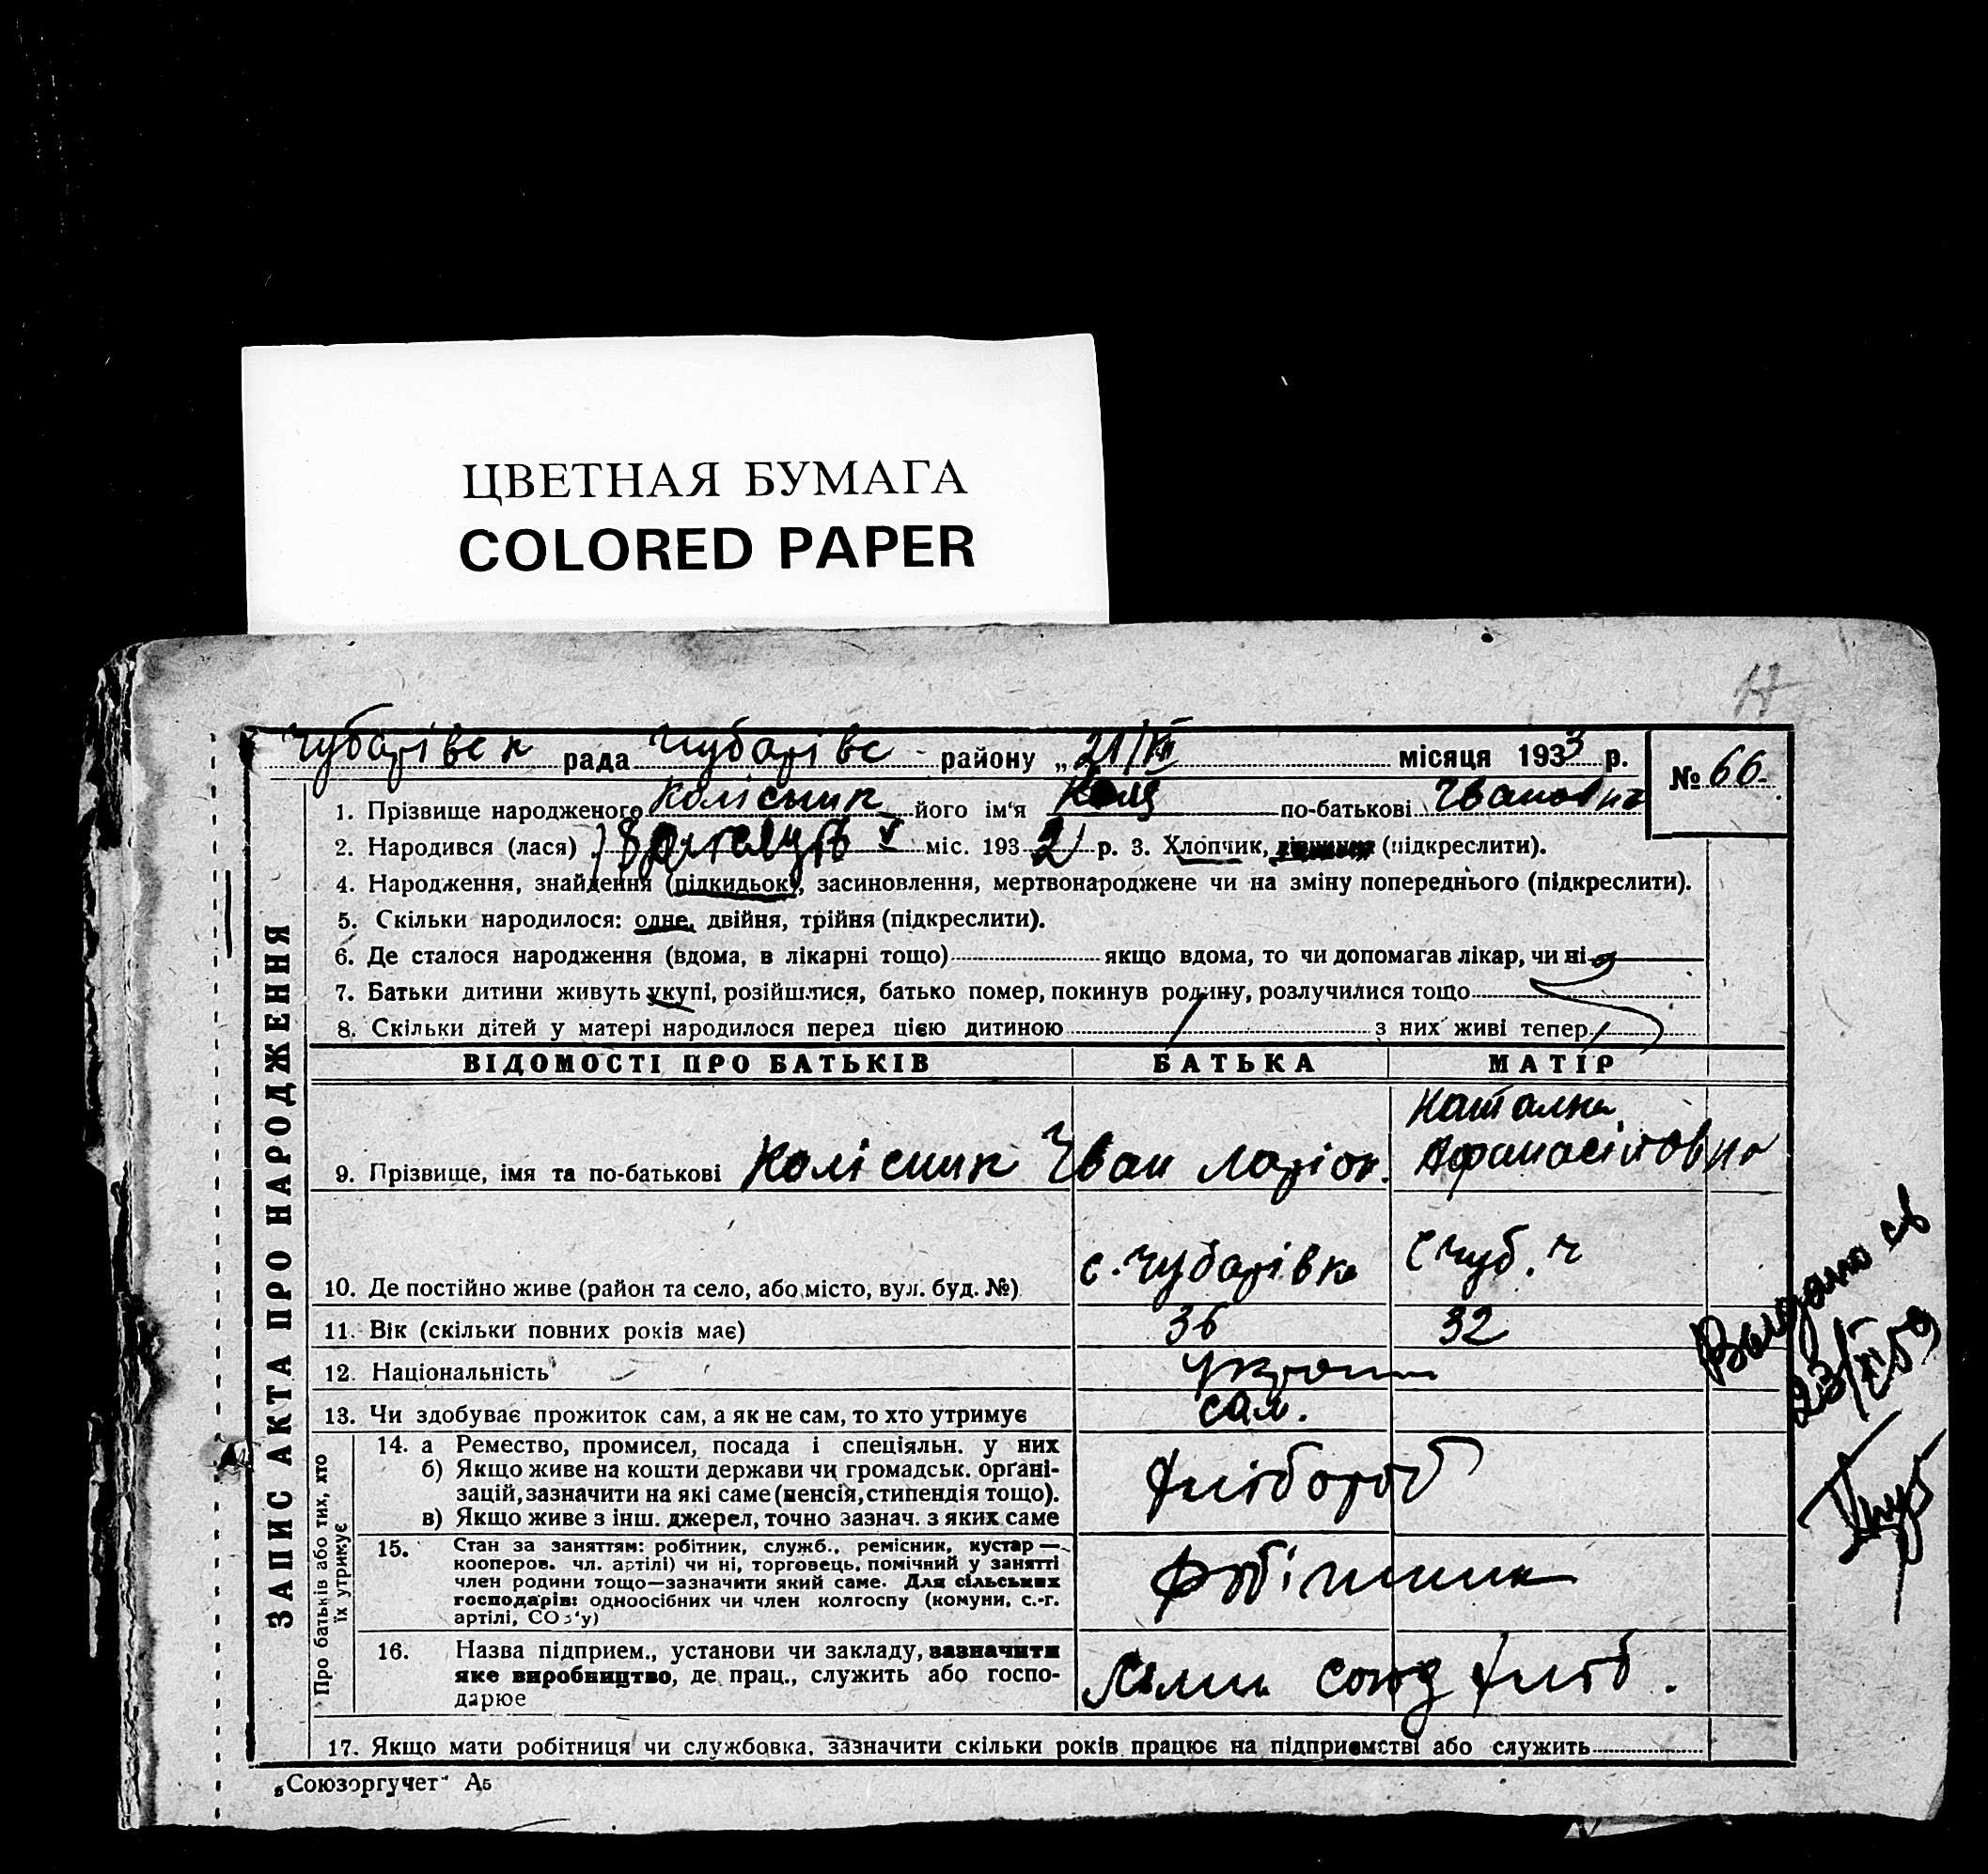 ЦВЕТНАЯ БУМАГА
COLORED PAPER
17
Чубарівск рада Чубарівс району „21/VII місяця 1933 р. № 66
1. Прізвище народженого Колісник його ім'я Коля по-батькові
2. Народився (лася) V міс. 1932 р. 3. Хлопчик, дівчинка (підкреслити).
4. Народження, знайдення (підкидьок), засиновлення, мертвонароджене чи на зміну попереднього (підкреслити).
5. Скільки народилося: одне, двійня, трійня (підкреслити).
6. Де сталося народження (вдома, в лікарні тощо) якщо вдома, то чи допомагав лікар, чи ні
7. Батьки дитини живуть укупі, розійшлися, батько помер, покинув родину, розлучилися тощо
8. Скільки дітей у матері народилося перед цією дитиною з них живі тепер
ВІДОМОСТІ ПРО БАТЬКІВ БАТЬКА МАТІР
9. Прізвище, імя та по-батькові Колісник Іван Ларіон. Наталка Афанасіївна
10. Де постійно живе (район та село, або місто, вул. буд. №) с. Чубарівка с Чуб.
11. Вік (скільки повних років має) 36 32
12. Національність украин
13. Чи здобуває прожиток сам, а як не сам, то хто утримує сам.
14. а Ремество, промисел, посада і спеціяльн. у них
б) Якщо живе на кошти держави чи громадськ. орґані-
зацій, зазначити на які саме (пенсія, стипендія тощо).
в) Якщо живе з інш. джерел, точно зазнач. з яких саме
хлібороб
15. Стан за заняттям: робітник, служб., ремісник, кустар —
кооперов. чл. артілі) чи ні, торговець, помічний у занятті
член родини тощо—зазначити який саме. Для сільських
господарів: одноосібних чи член колгоспу (комуни, с.-г.
артілі, СОЗ'у)
робітник
16. Назва підприєм., установи чи закладу, зазначити
яке виробництво, де прац., служить або госпо-
дарює
союз хліб.
17. Якщо мати робітниця чи службовка, зазначити скільки років працює на підприємстві або служить
ЗАПИС АКТА ПРО НАРОДЖЕННЯ
Про батьків або тих, хто
їх утримує
Видано св
23/XI 59
„Союзоргучет" А5